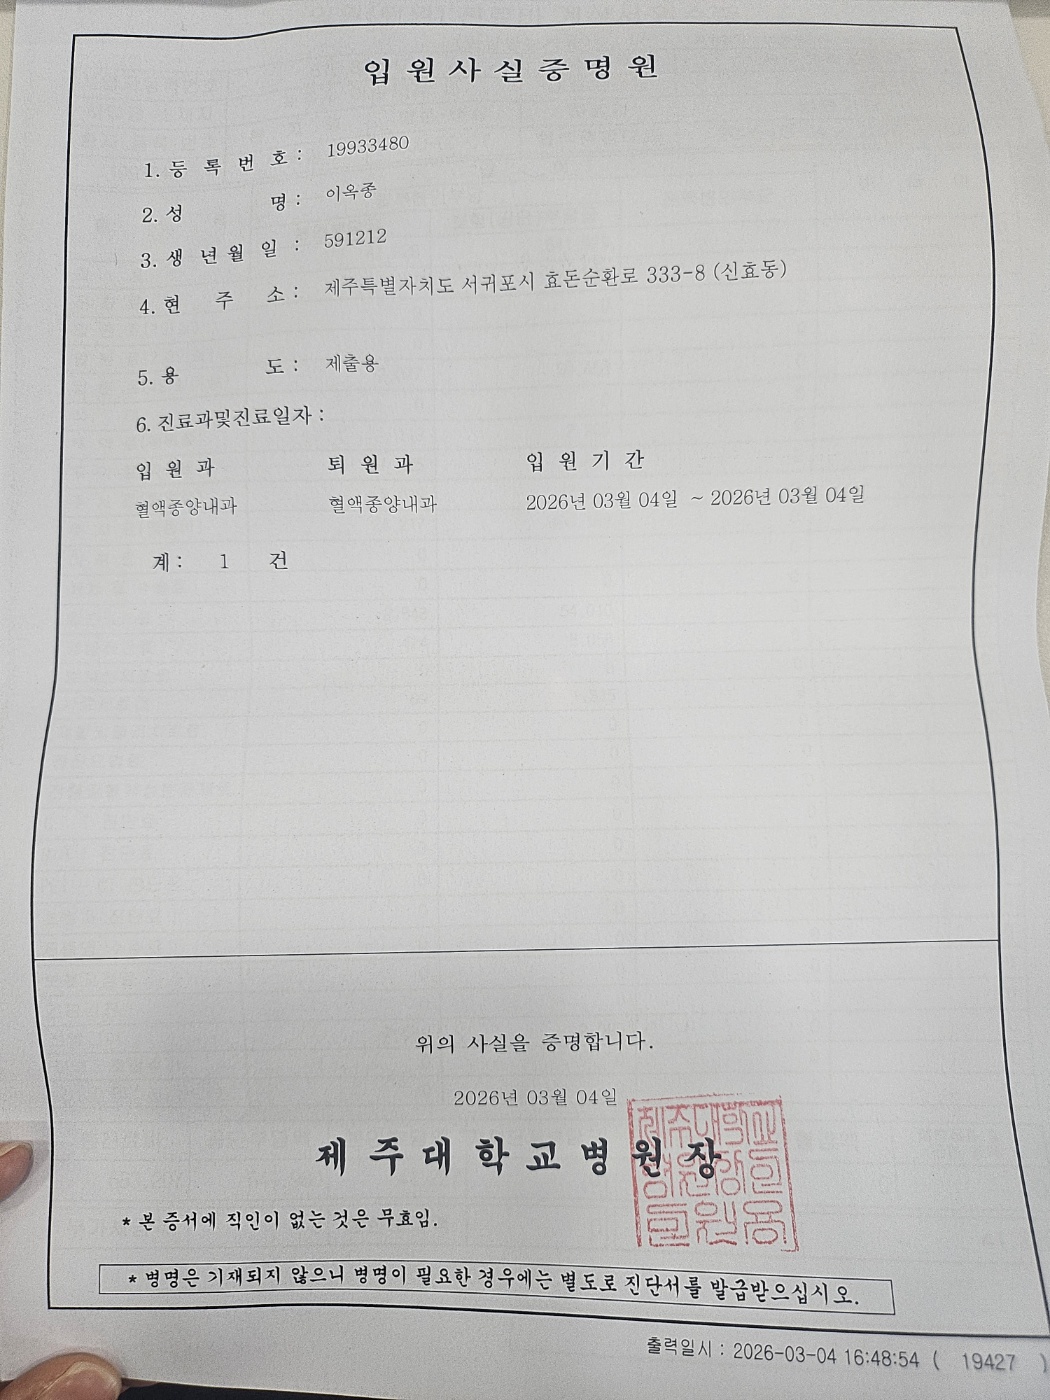 입원사실증명원
1. 등 록 번 호 : 19933480
2. 성 명 : 이옥종
3. 생 년 월 일 : 591212
4. 현 주 소 : 제주특별자치도 서귀포시 효돈순환로 333-8 (신효동)
5. 용 도 : 제출용
6. 진료과및진료일자 :
입 원 과 퇴 원 과 입 원 기 간
혈액종양내과 혈액종양내과 2026년 03월 04일 ~ 2026년 03월 04일
계 : 1 건
위의 사실을 증명합니다.
2026년 03월 04일
제 주 대 학 교 병 원 장
* 본 증서에 직인이 없는 것은 무효임.
* 병명은 기재되지 않으니 병명이 필요한 경우에는 별도로 진단서를 발급받으십시오.
출력일시 : 2026-03-04 16:48:54 ( 19427 )